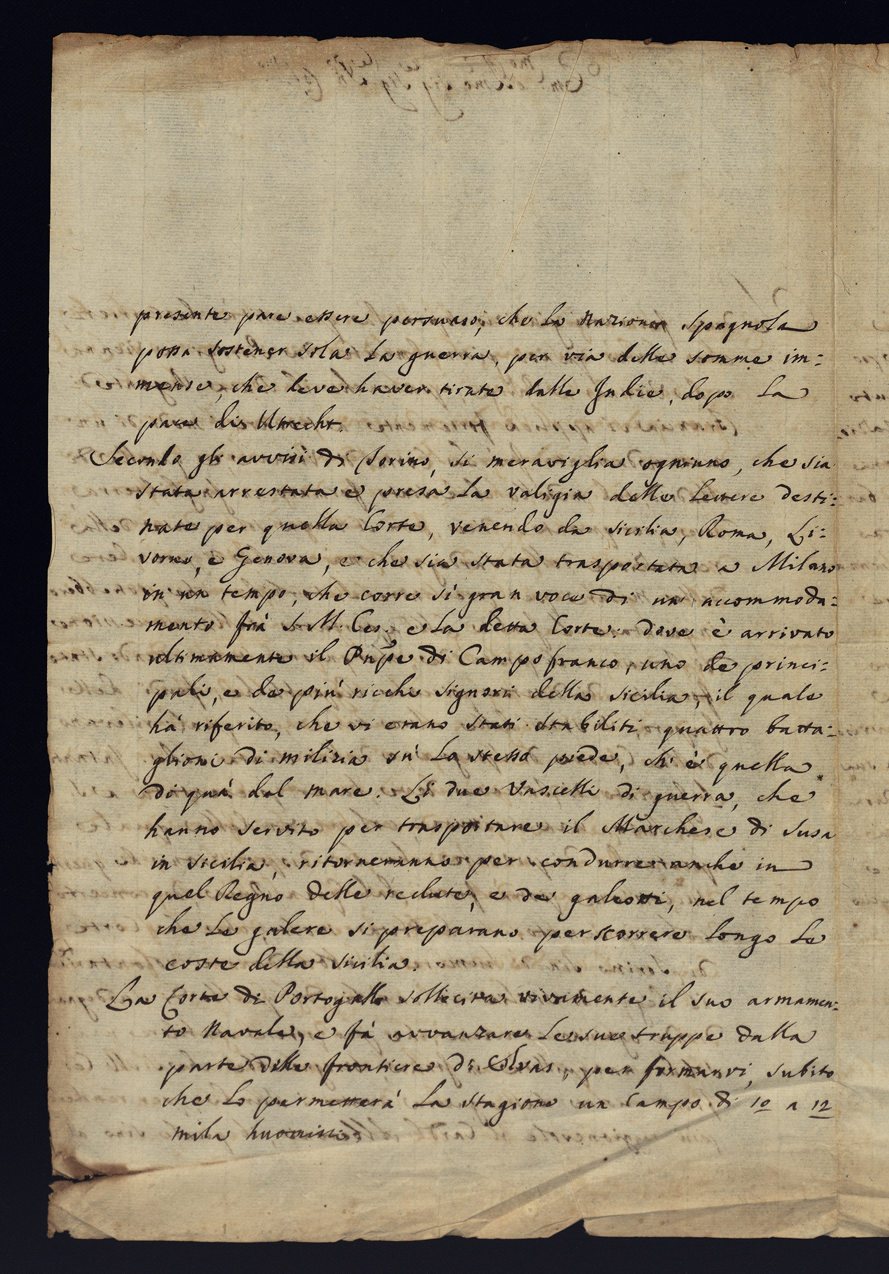 presente pare essere persuaso, che la Nazione Spagnola
possa sostener sola la guerra, per via delle somme im=
mense, che deve haver tirate dalle Indie, dopo la
pace di Utrecht.
Secondo gli avvisi di Torino, si meraviglia ogniuno, che sia
stata arrestata e presa la valigia delle lettere desti=
nate per quella Corte, venendo da Sicilia, Roma, Li=
vorno, e Genova, e che sia stata trasportata a Milano
in un tempo, che corre sì gran voce di un accommoda=
mento frà S. M. Ces. e la detta Corte: dove è arrivato
ultimamente il Pnpe di Campofranco, uno de princi=
pali, e de più ricchi Signori della Sicilia, il quale
hà riferito, che vi erano stati stabiliti quattro batta=
glioni di milizia sù lo stesso piede, ch' è quella
di quà dal mare. Li due Vascelli di guerra, che
hanno servito per trasportare il Marchese di Susa
in Sicilia, ritorneranno per condurre anche in
quel Regno delle reclute, e de galeotti, nel tempo
che le galere si preparano per scorrere longo le
coste della Sicilia.
La Corte di Portogallo sollecita vivamente il suo armamen=
to Navale, e fà avvanzare le sue truppe dalla
parte delle frontiere di Elvas, per formarvi, subito
che lo permetterà la stagione un Campo di 10 a 12
mila huomini